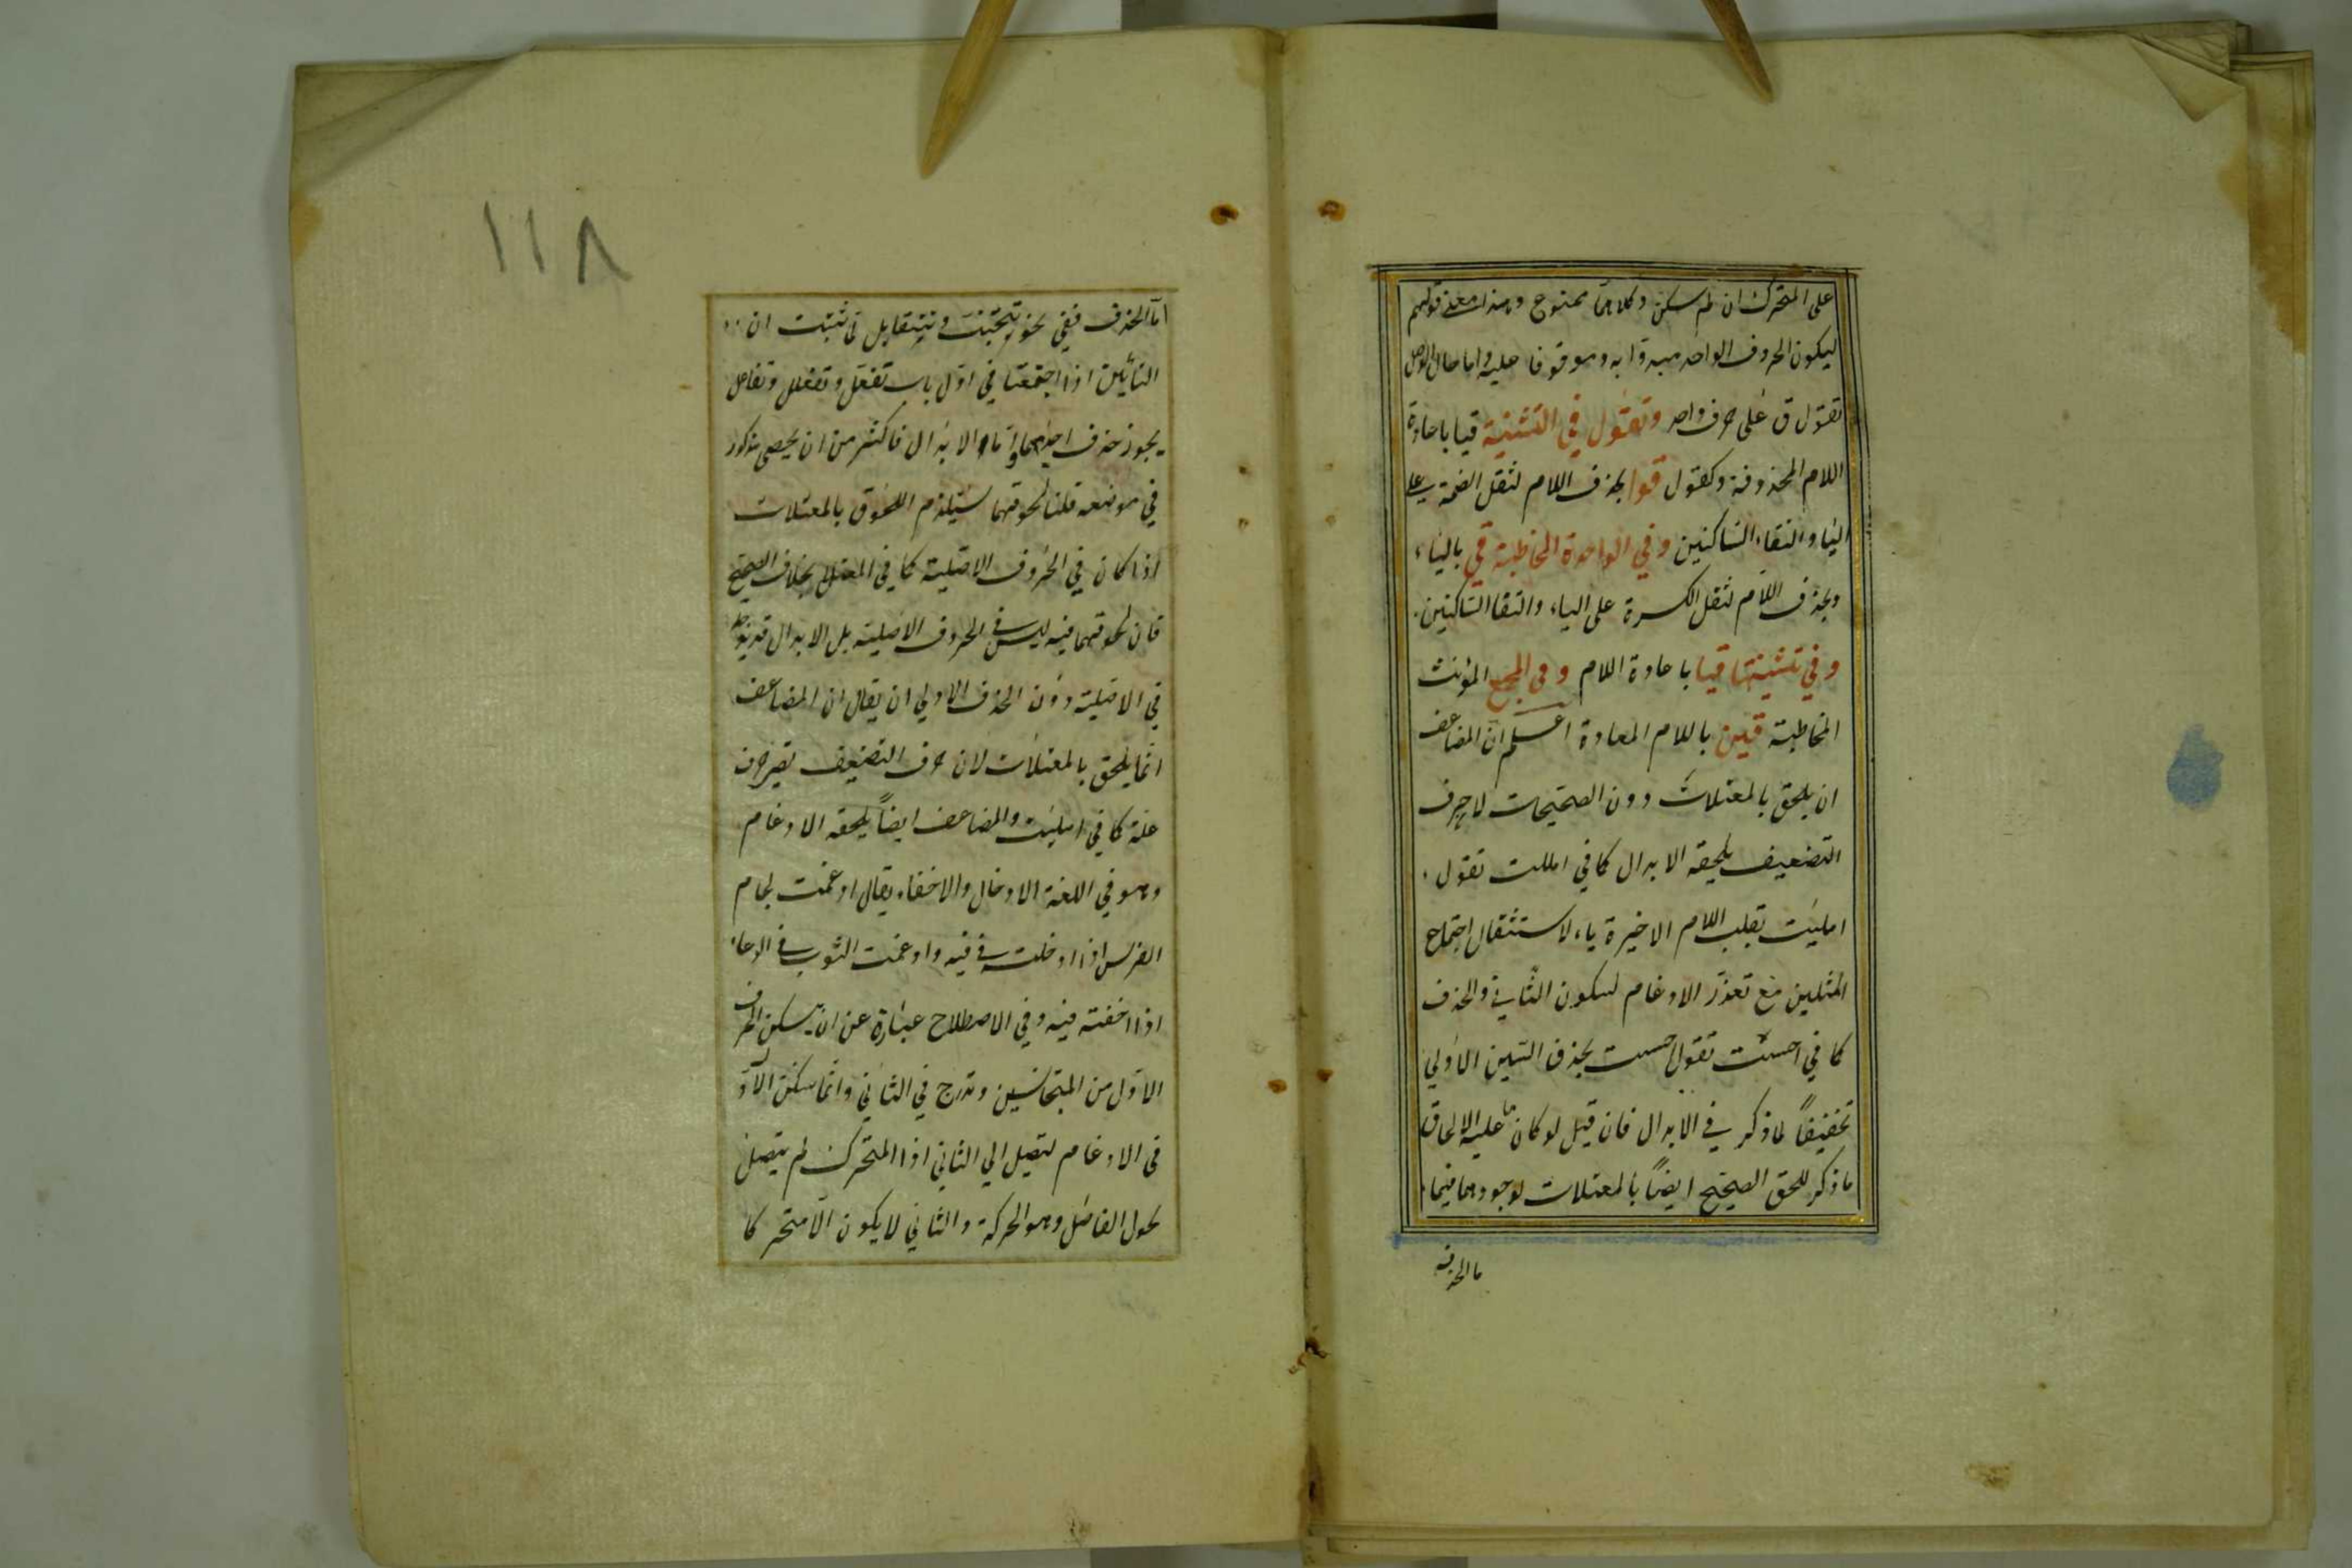 على المتحرك ان لم يسكن وكلاهما ممنوع وهذا معنى قولهم
ليكون الحروف الواحد مبدوّا به وموقوفا عليه واما حال الوصل
تقول ق على حرف واحد وتقول في التثنية قيا باعادة
اللام المحذوفة وكقول قوا بحذف اللام لثقل الضمة على
الياء والتقاء الساكنين وفي الواحدة المخاطبة قي بالياء
وبحذف اللام لثقل الكسرة على الياء والتقا الساكنين
وفي تثنيتها قيا باعادة اللام وفي الجمع المؤنث
المخاطبة قين باللام المعادة اعلم ان المضاعف
ان يلحق بالمعتلات دون الصحيحات لا حرف
التضعيف يلحقه الابدال كما في امللت تقول
امليت بقلب اللام الاخيرة ياء لاستثقال اجتماع
المثلين مع تعذر الادغام لسكون الثاني والحذف
كما في احسست تقول احست بحذف السين الاولي
تخفيفاً لما ذكر في الابدال فان قيل لو كان علية الالحاق
ما ذكر للحق الصحيح ايضاً بالمعتلات لوجودهما فيها
ما الحذف
١١٨
اما الحذف ففي نحو تتجنّب وتتقابل لما ثبتت ان
التائين اذا اجتمعتا في اوّل باب تفعّل وتفعلل وتفاعل
يجوز حذف احديهما واما الابدال فاكثر من ان يحصى مذكور
في موضعه قلنا لحوقهما يستلزم اللحوق بالمعتلات
اذا كان في الحروف الاصلية كما في المعتل بخلاف الصحيح
فان لحوقهما فيه ليس في الحروف الاصلية بل الابدال قد يوجد
في الاصلية دون الحذف الاولي ان يقال ان المضاعف
انما يلحق بالمعتلات لان حرف التضعيف تصير حرف
علة كما في امليت والمضاعف ايضاً يلحقه الادغام
وهو في اللغة الادخال والاخفاء يقال ادغمت لجام
الفرس اذا ادخلته في فيه وادغمت الثوب في الوعاء
اذا اخفته فيه وفي الاصطلاح عبارة عن ان يسكن الحرف
الاول من المتجانسين وتدرج في الثاني وانما سكن الاوّل
في الادغام لتصيل الي الثاني اذا المتحرك لم يتصل
لحول الفاصل وهو الحركة والثاني لا يكون الا متحركا